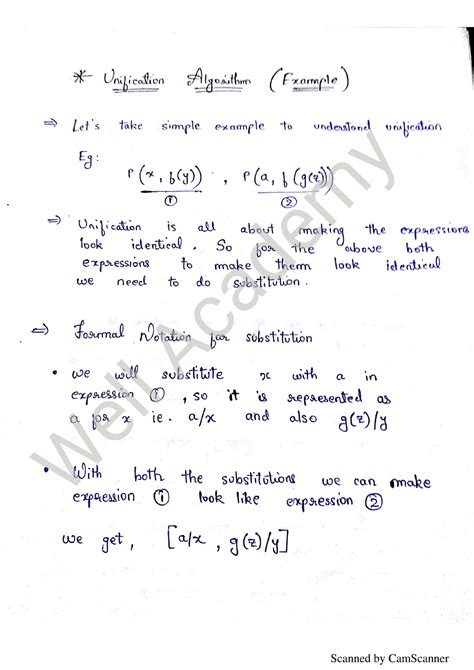 * Unification Algorithm (Example)
⇒ Let's take simple example to understand unification
Eg:
P(x, f(y)) , P(a, f(g(z)))
① ②
⇒ Unification is all about making the expressions
look identical. So for the above both
expressions to make them look identical
we need to do substitution.
⇒ Formal Notation for substitution
• we will substitute x with a in
expression ①, so it is represented as
a for x ie. a/x and also g(z)/y
• With both the substitutions we can make
expression ① look like expression ②
we get, [a/x, g(z)/y]
Well Academy
Scanned by CamScanner